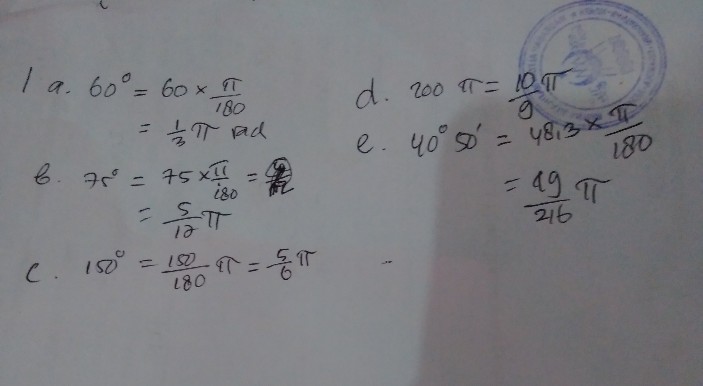 1 a. 60° = 60 × π/180
= 1/3 π rad
b. 75° = 75 × π/180 =
= 5/12 π
c. 150° = 150/180 π = 5/6 π
d. 200 π = 10/9 π
e. 40° 50' = 48,3 × π/180
= 49/216 π